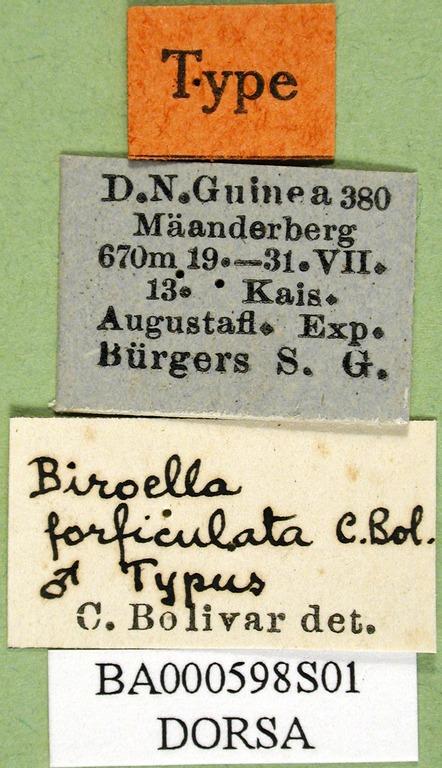 Type
D.N.Guinea 380
Mäanderberg
670m 19.—31. VII.
13. Kais.
Augustafl. Exp.
Bürgers S. G.
Biroella
forficulata C.Bol.
♂ Typus
C. Bolivar det.
BA000598S01
DORSA